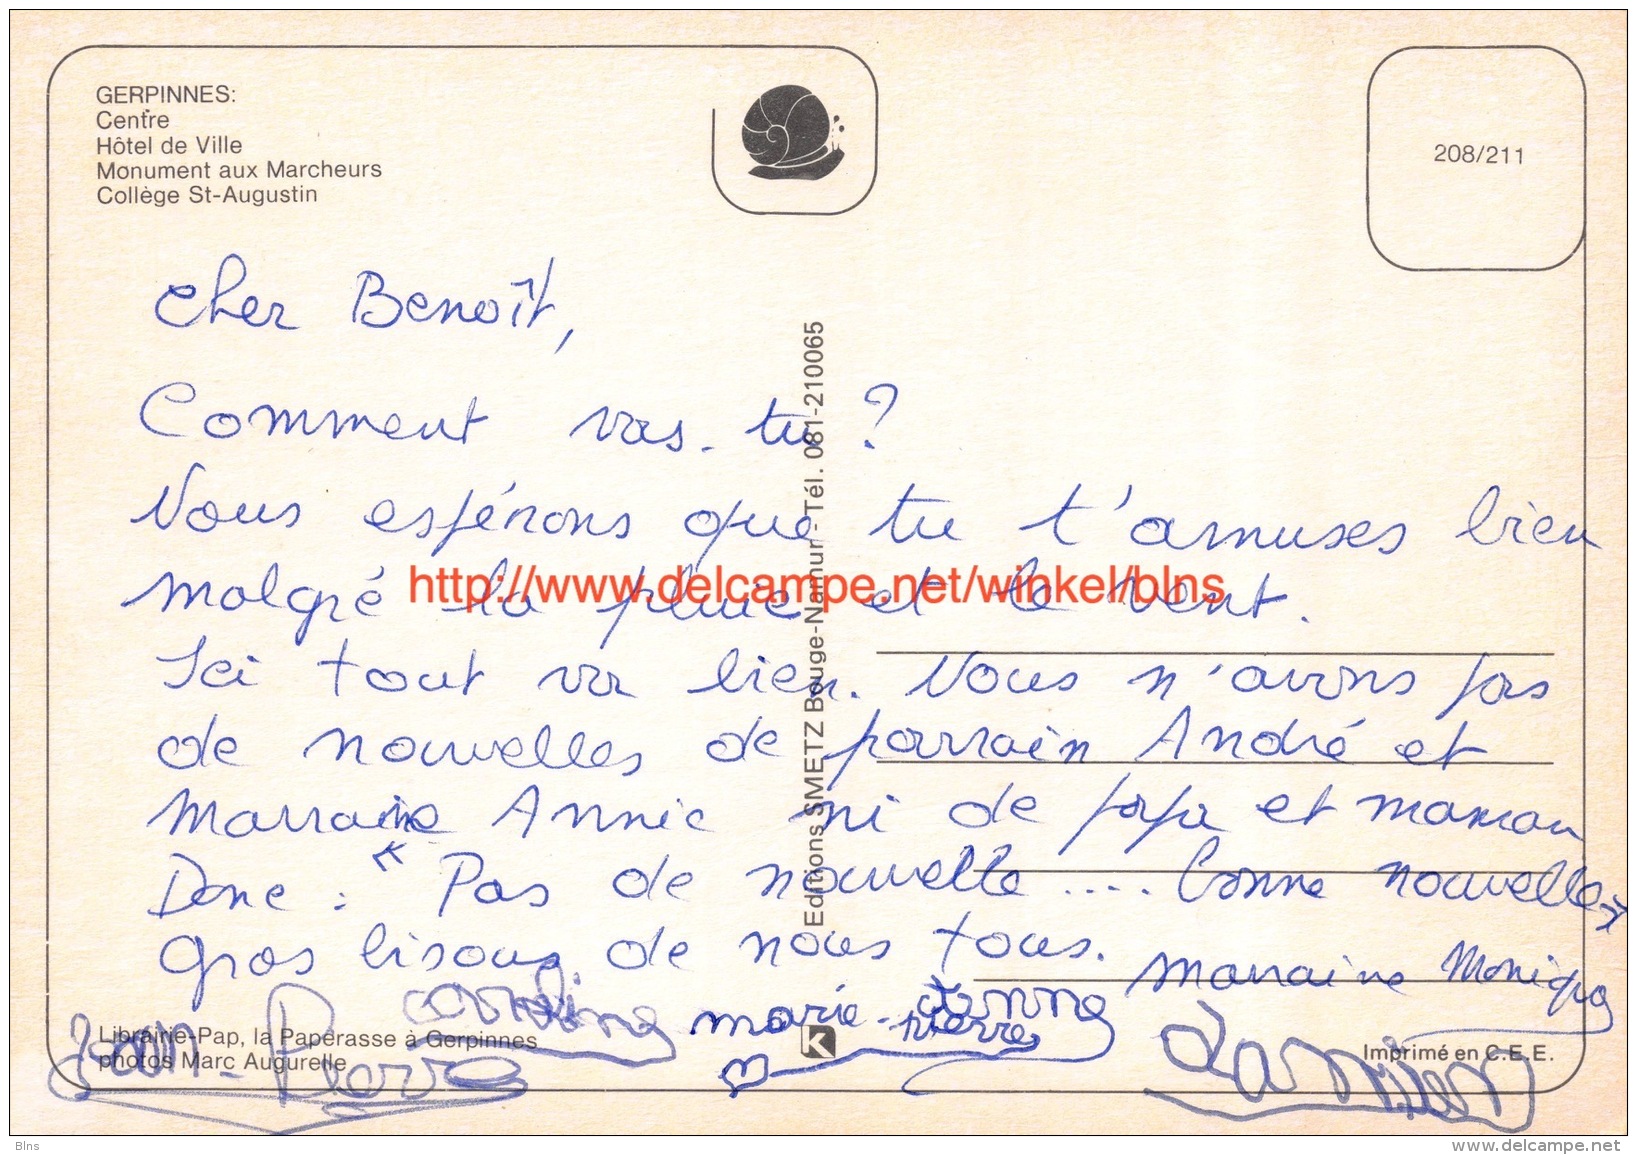 GERPINNES:
Centre
Hôtel de Ville
Monument aux Marcheurs
Collège St-Augustin
208/211
Cher Benoît,
Comment vas-tu ?
Nous espérons que tu t'amuses bien
malgré la pluie et le vent.
Ici tout va bien. Nous n'avons pas
de nouvelles de parrain André et
Marraine Annie ni de papa et maman
Donc : "Pas de nouvelle .... bonne nouvelle"
gros bisous de nous tous.
Marraine Monique
Caroline
marie-pierre
Jean-Pierre
Damien
Editions SMETZ Bouge-Namur - Tél. 081-210065
http://www.delcampe.net/winkel/blns
Librairie-Pap, la Paperasse à Gerpinnes
photos Marc Augurelle
K
Imprimé en C.E.E.
Blns
www.delcampe.net